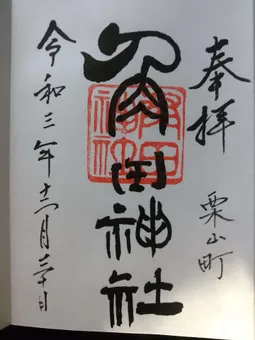 奉拝
栗山町
角田神社
角田
神社
令和三年十二月三十日